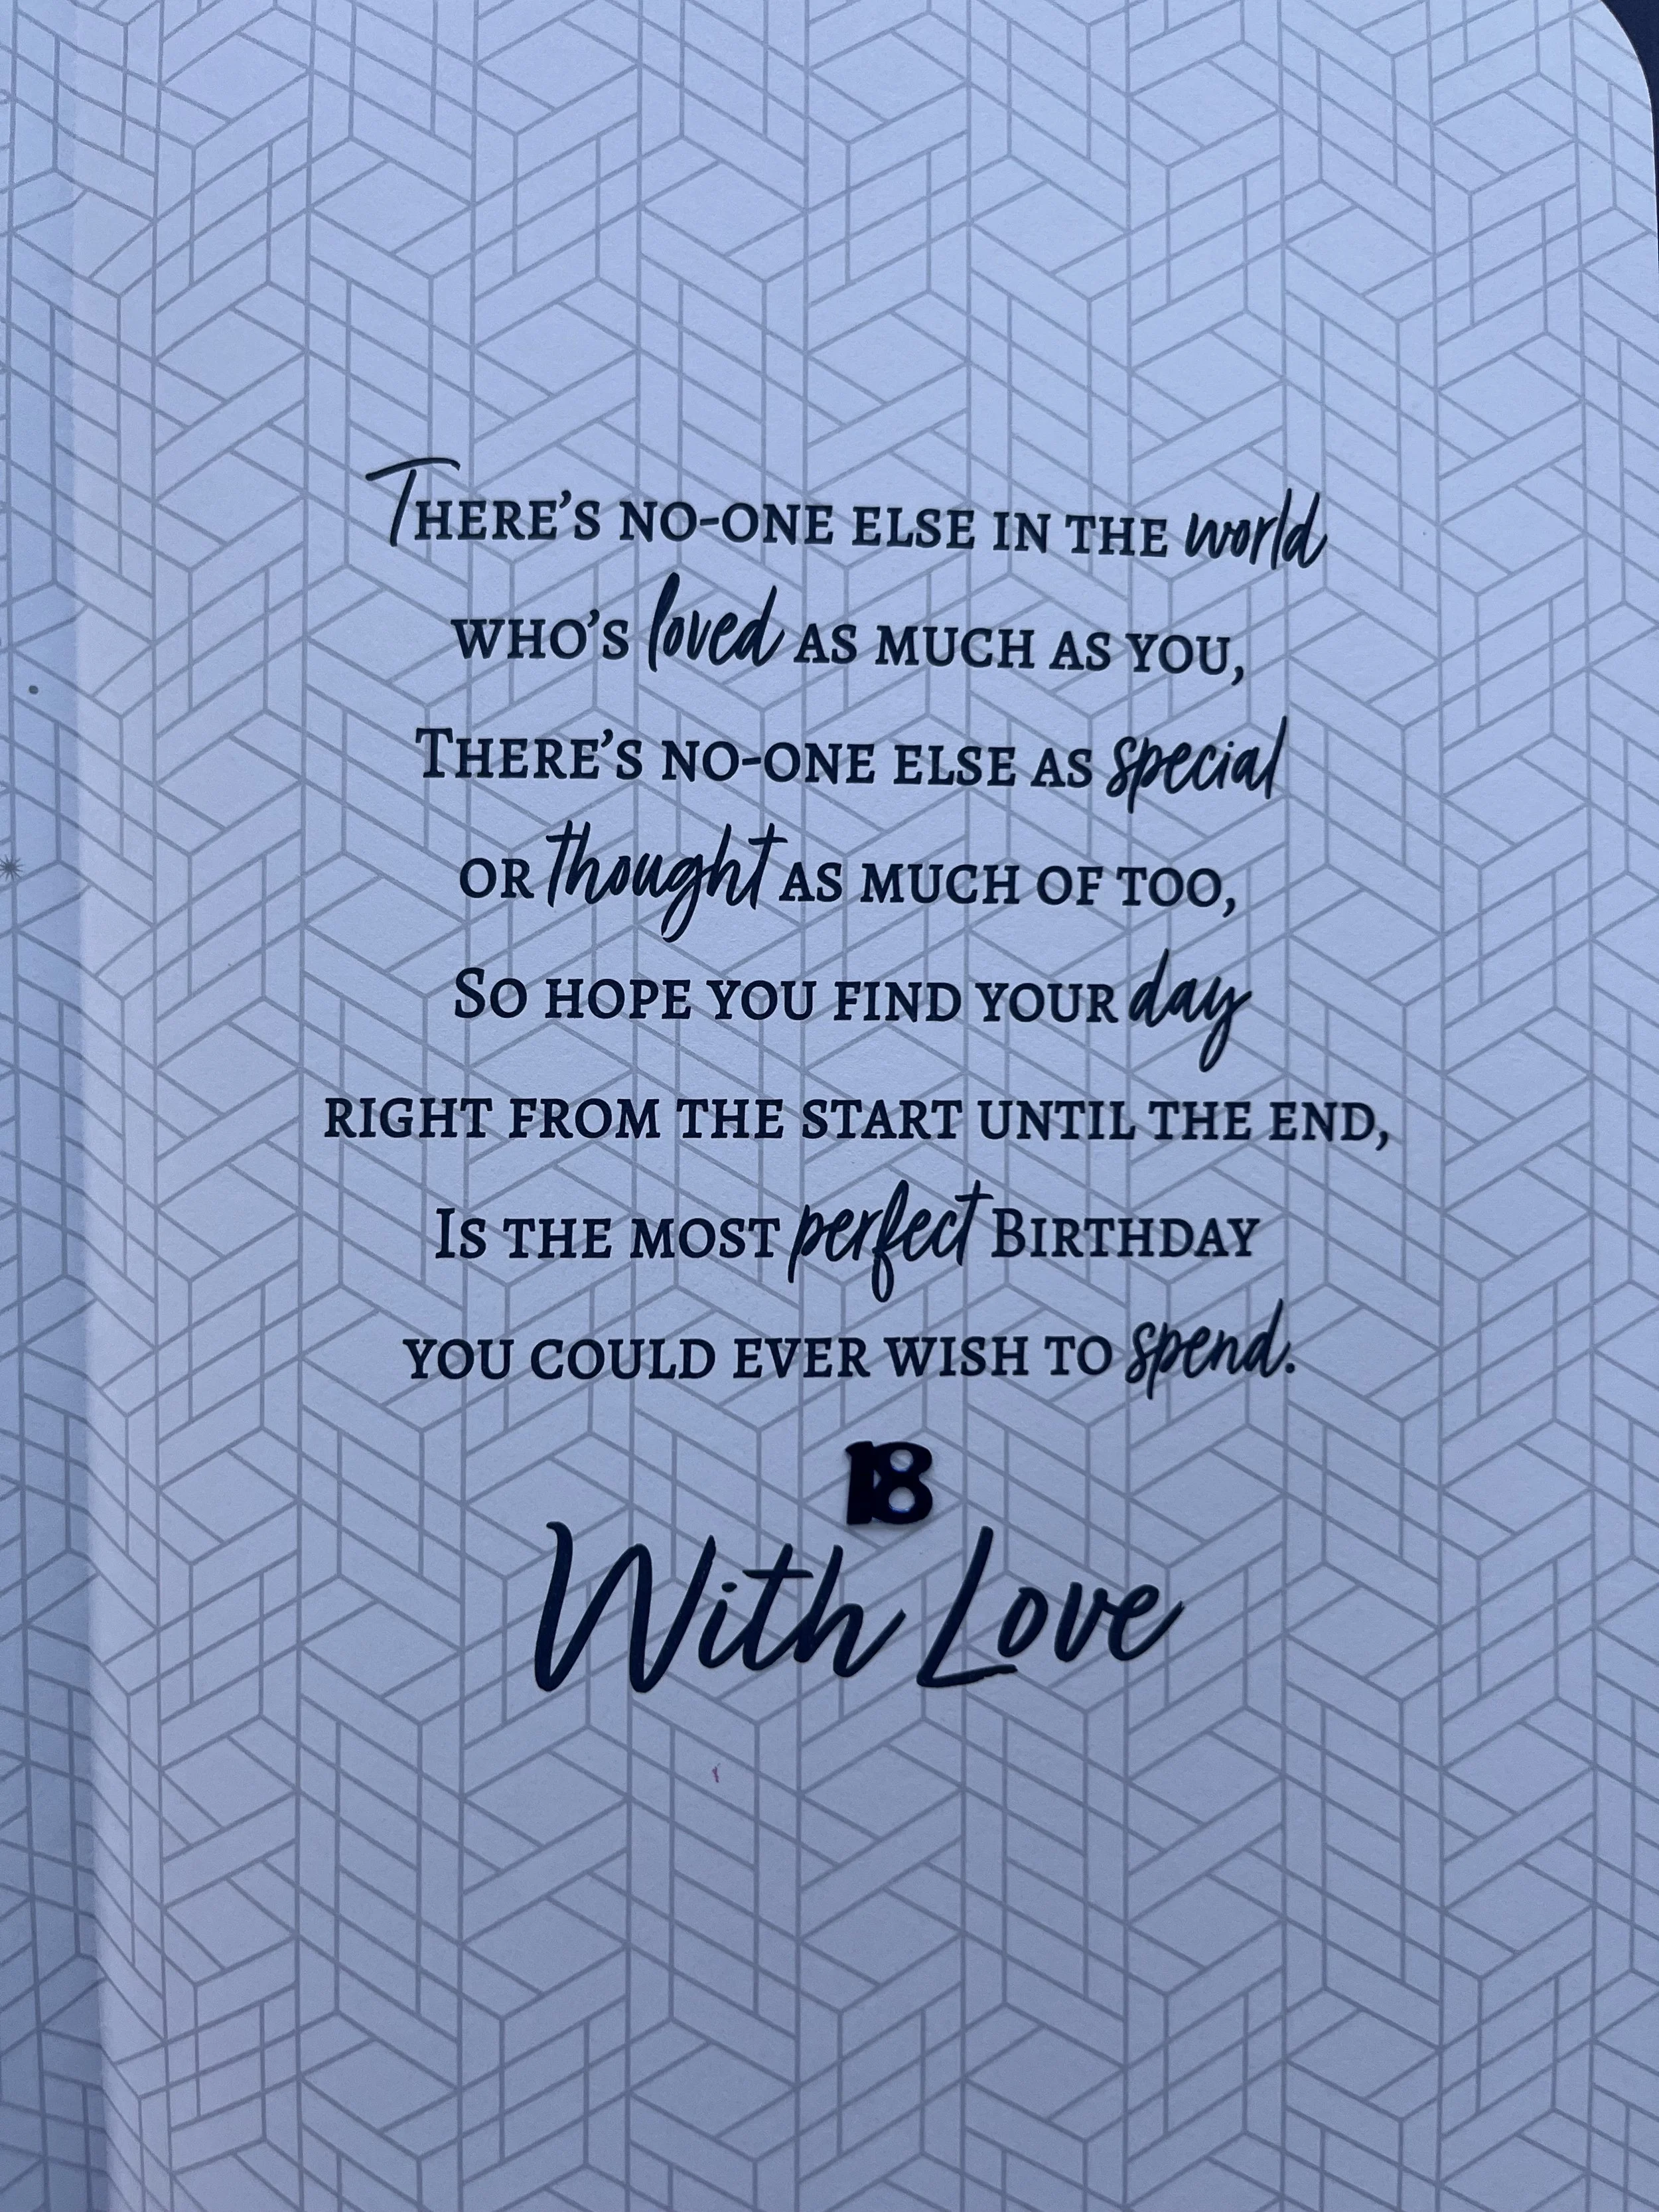 There's no-one else in the world
who's loved as much as you,
There's no-one else as special
or thought as much of too,
So hope you find your day
right from the start until the end,
Is the most perfect Birthday
you could ever wish to spend.
18
With Love